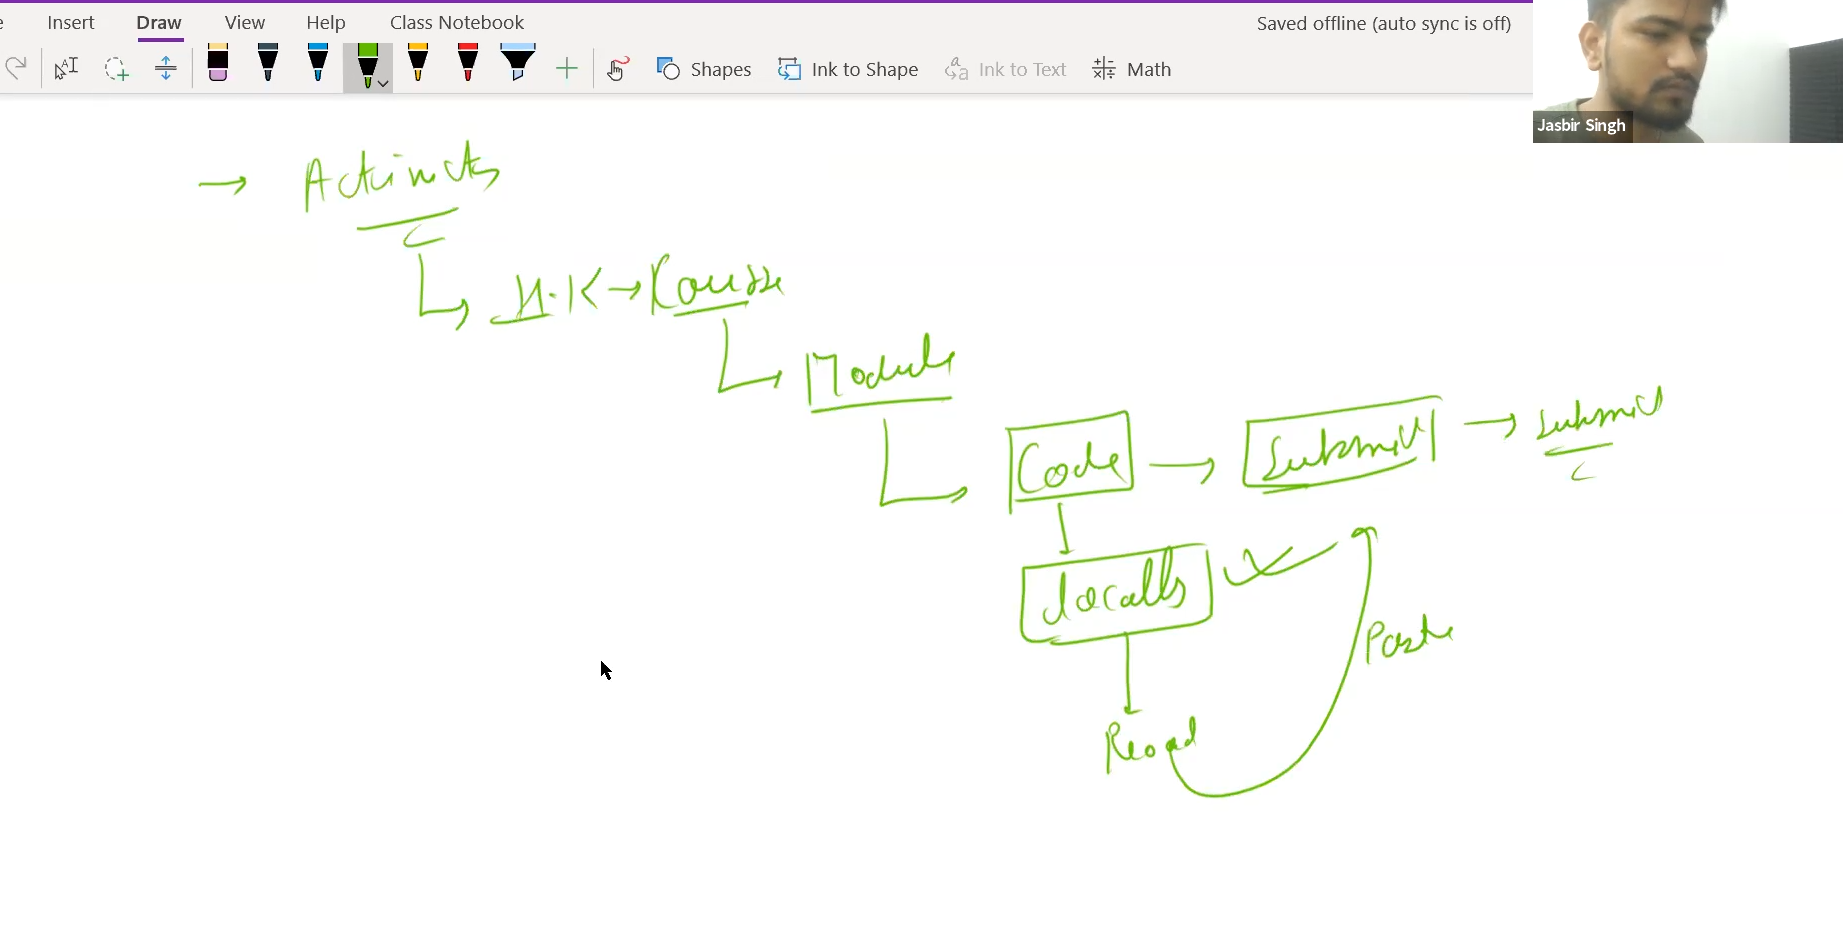 Insert Draw View Help Class Notebook Saved offline (auto sync is off)
Shapes Ink to Shape Ink to Text Math
Jasbir Singh
→ 
↳ → Course
↳ Module
↳ Code → Submit → Submit
Locally
Paste